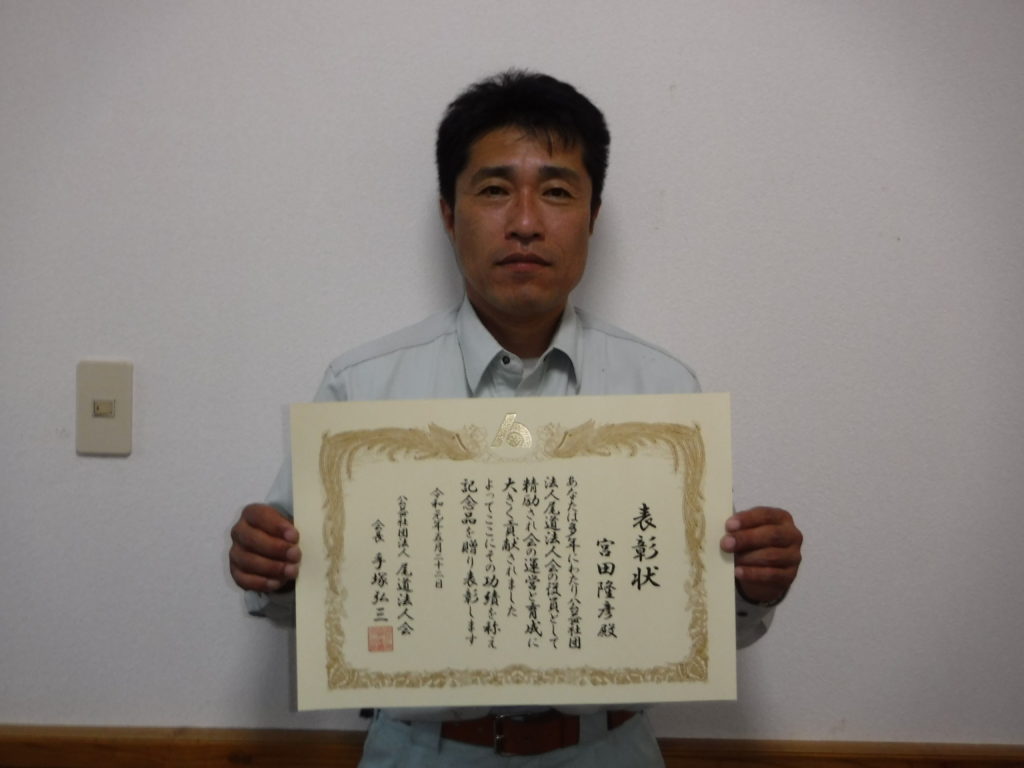 表彰状
宮田隆彦殿
あなたは多年にわたり公益社団
法人尾道法人会の役員として
精励され会の運営と育成に
大きく貢献されました
よってここにその功績を称え
記念品を贈り表彰します
令和元年五月二十二日
公益社団法人 尾道法人会
会長 手塚弘三